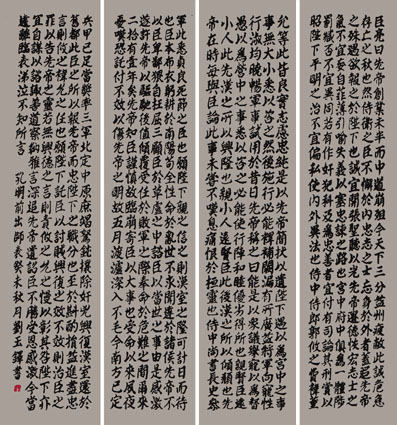 臣亮曰先帝創業未半而中道崩殂今天下三分益州疲敝此誠危急
存亡之秋也然侍衛之臣不懈於內忠志之士忘身於外者蓋追先帝
之殊遇欲報之於陛下也誠宜開張聖聽以光先帝遺德恢宏志士之
氣不宜妄自菲薄引喻失義以塞忠諫之路也宮中府中俱為一體陟
罰臧否不宜異同若有作奸犯科及為忠善者宜付有司論其刑賞以
昭陛下平明之治不宜偏私使內外異法也侍中侍郎郭攸之費禕董
允等此皆良實志慮忠純是以先帝簡拔以遺陛下愚以為宮中之事
事無大小悉以咨之然後施行必能裨補闕漏有所廣益將軍向寵性
行淑均曉暢軍事試用於昔日先帝稱之曰能是以眾議舉寵以為督
愚以為營中之事悉以咨之必能使行陣和睦優劣得所也親賢臣遠
小人此先漢之所以興隆也親小人遠賢臣此後漢之所以傾頹也先
帝在時每與臣論此事未嘗不嘆息痛恨於桓靈也侍中尚書長史參
軍此悉貞良死節之臣也願陛下親之信之則漢室之隆可計日而待
也臣本布衣躬耕於南陽苟全性命於亂世不求聞達於諸侯先帝不
以臣卑鄙猥自枉屈三顧臣於草廬之中諮臣以當世之事由是感激
遂許先帝以驅馳後值傾覆受任於敗軍之際奉命於危難之間爾來
二十有一年矣先帝知臣謹慎故臨崩寄臣以大事也受命以來夙夜
憂嘆恐託付不效以傷先帝之明故五月渡瀘深入不毛今南方已定
兵甲已足當獎率三軍北定中原庶竭駑鈍攘除奸兇興復漢室還於
舊都此臣之所以報先帝而忠陛下之職分也至於斟酌損益進盡忠
言則攸之禕允之任也願陛下託臣以討賊興復之效不效則治臣之
罪以告先帝之靈若無興德之言則責攸之禕允之慢以彰其咎陛下亦
宜自謀以諮諏善道察納雅言深追先帝遺詔臣不勝受恩感激今當
遠離臨表涕泣不知所言 孔明前出師表癸未秋月劉玉鐸書